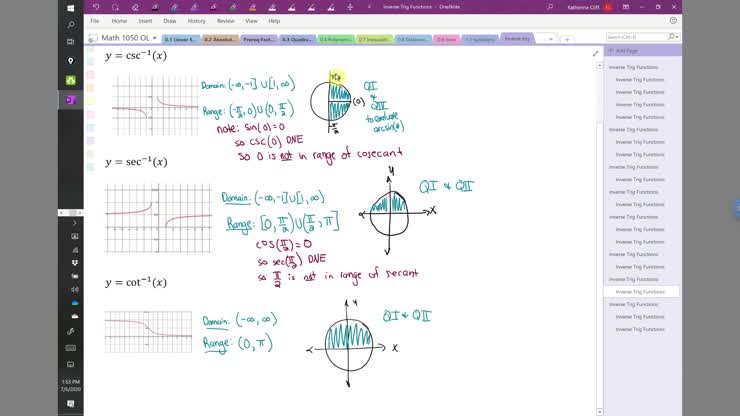 Inverse Trig Functions - OneNote
Katherine Clift
Home Insert Draw History Review View Help
Math 1050 OL
Search (Ctrl+E)
Add Page
y = csc⁻¹(x)
Domain: (-∞,-1] ∪ [1,∞)
Range: (-π/2, 0) ∪ (0, π/2)
note: sin(0)=0
so csc(0) DNE
so 0 is not in range of cosecant
π/2
(0)
-π/2
QI
&
to evaluate
arcsin(θ)
y = sec⁻¹(x)
Domain: (-∞,-1] ∪ [1,∞)
Range: [0, π/2) ∪ (π/2, π]
cos(π/2) = 0
so sec(π/2) DNE
so π/2 is not in range of secant
y
x
QI & QII
y = cot⁻¹(x)
Domain: (-∞, ∞)
Range: (0, π)
y
x
QI & QII
Inverse Trig Functions
Inverse Trig Functions
Inverse Trig Functions
Inverse Trig Functions
Inverse Trig Functions
Inverse Trig Functions
Inverse Trig Functions
Inverse Trig Functions
Inverse Trig Functions
Inverse Trig Functions
Inverse Trig Functions
Inverse Trig Functions
Inverse Trig Functions
Inverse Trig Functions
Inverse Trig Functions
Inverse Trig Functions
Inverse Trig Functions
Inverse Trig Functions
Inverse Trig Functions
Inverse Trig Functions
Inverse Trig Functions
1:53 PM
7/5/2020